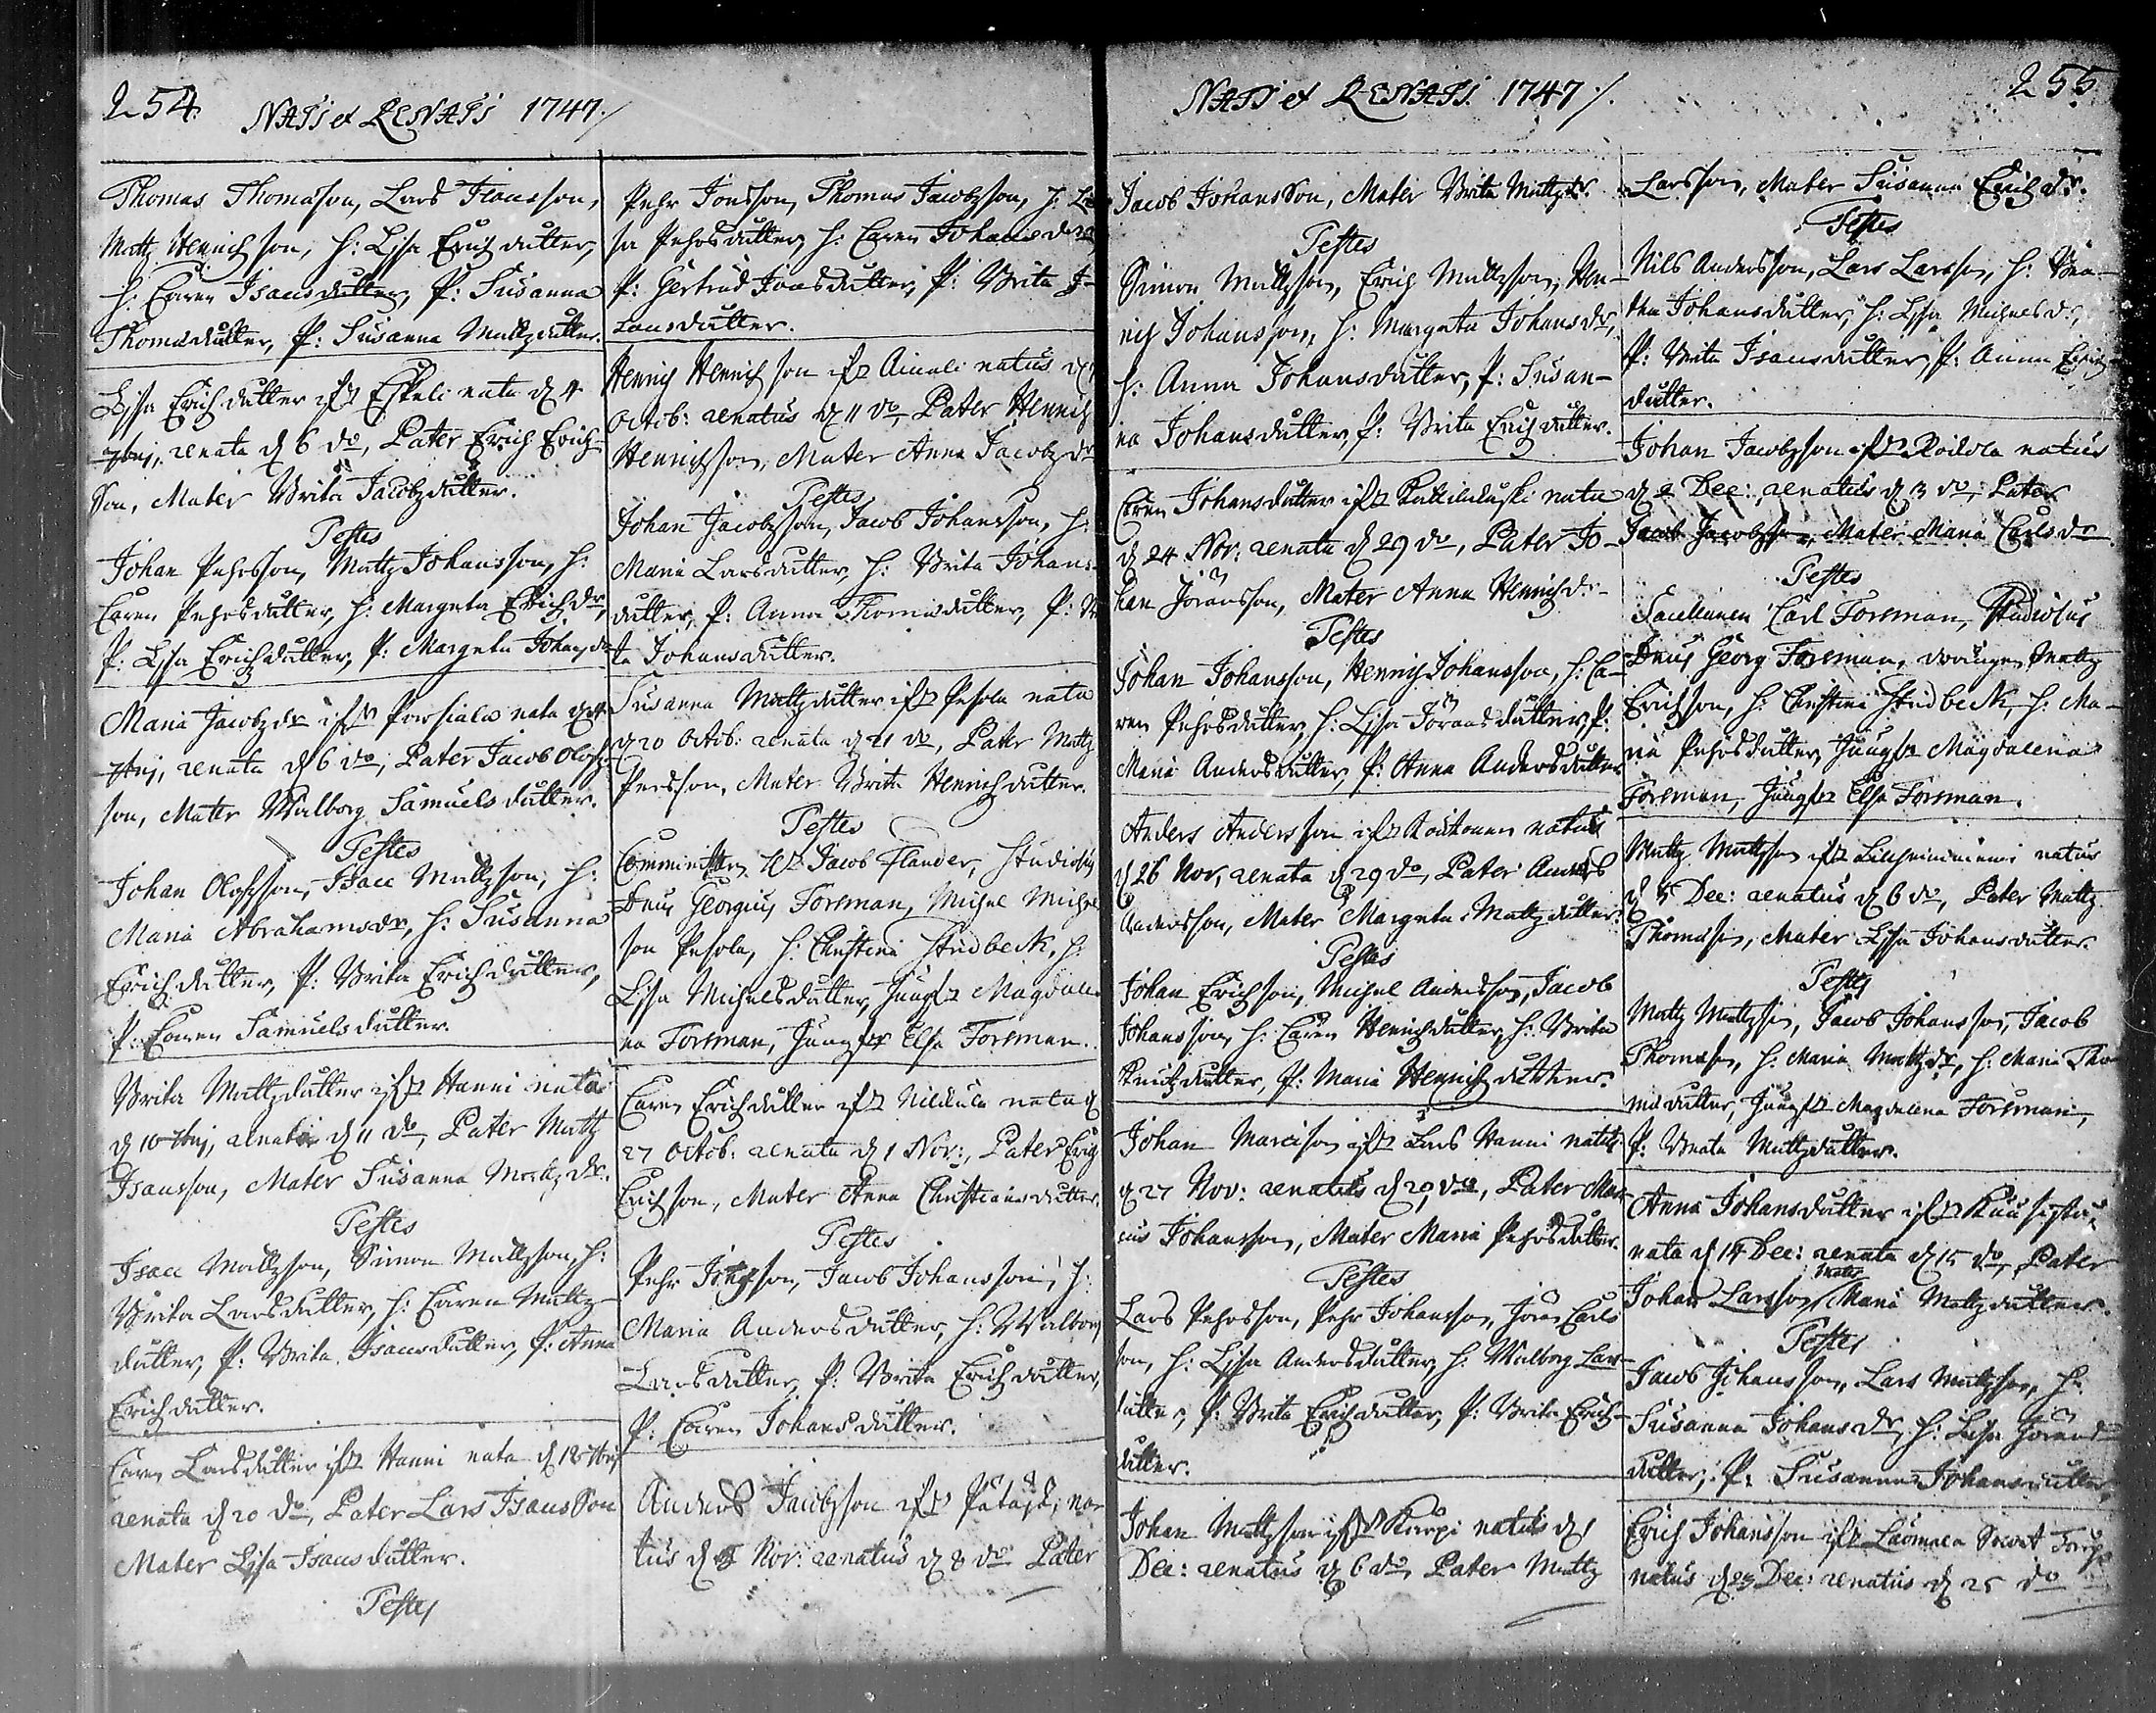 254. NATI et RENATI 1747./.
Thomas Thomasson, Lars Isacsson,
Mattz Henrichson, H: Lisa Erichdutter,
H: Caren Isacsdutter, P: Susanna
Thomædutter, P: Susanna Mattzdutter.
Lisa Erichdutter ifr Eskeli nata d 4
7brij, renata d 6 do, Pater Erich Erich-
Son, Mater Brita Jacobzdutter.
Testes
Johan Pehrsson, Mattz Johansson, H:
Caren Pehrsdutter, H: Margeta Erichdr,
P: Lisa Erichzdutter, P: Margeta Johansdr
Maria Jacobzdr ifr nata d
7brij, renata d 6 do, Pater Jacob Olofs-
son, Mater Walborg Samuelsdutter.
Testes
Johan Olofsson, Isacc Mattzson, H:
Maria Abrahamsdr, H: Susanna
Erichdutter, P: Brita Erichdutter,
P: Caren Samuelsdutter.
Brita Mattzdutter ifr Hanni nata
d 10 7brij, renata d 11 do, Pater Mattz
Isacsson, Mater Susanna Mattzdr.
Testes
Isacc Mattzson, Simon Mattzson, H:
Brita Larsdutter, H: Caren Mattz-
dutter, P: Brita Isacsdutter, P: Anna
Erichdutter.
Caren Larsdutter ifr Hanni nata d 18 7brij
renata d 20 do, Pater Lars IsacsSon
Mater Lisa Isacsdutter.
Testes
Pehr Jonsson, Thomas Jacobzson, H: Li-
sa Pehrsdutter, H: Caren Johansdr
P: Gertrud Jonsdutter, P: Brita I-
sacsdutter.
Henrich Henrichson ifr natus d
Octob: renatus d 11 do, Pater Henrich
Henrichsson, Mater Anna Jacobzdr
Testes
Johan Jacobzson, Jacob Johansson, H:
Maria Larsdutter, H: Brita Johans-
dutter, P: Anna Thomædutter, P: Bri
ta Johansdutter.
Susanna Mattzdutter ifr Pesola nata
d 20 Octob: renata d 21 do, Pater Mattz
Persson, Mater Brita Henrichdutter.
Testes
Comminister Hr Jacob Flander, Studiosus
Dnus Georgius Forsman, Michel Michel
son Pesola, H: Christina Studbeck, H:
Lisa Michelsdutter, Jungfr Magdale-
na Forsman, Jungfr Elsa Forsman.
Caren Erichdutter ifr nata d
27 Octob: renata d 1 Nov:, Pater Erich
Erichson, Mater Anna Christiansdutter.
Testes
Pehr son, Jacob Johansson, H:
Maria Andersdutter, H: Walborg
Larsdutter, P: Brita Erichdutter,
P: Caren Johansdutter.
Anders Jacobzson ifr na
tus d Nov: renatus d 8 do Pater
NATI et RENATI 1747./. 255
Jacob JohansSon, Mater Brita Mattzdr.
Testes
Simon Mattzson, Erich Mattzson, Hen-
rich Johansson, H: Margeta Johansdr,
H: Anna Johansdutter, P: Susan-
na Johansdutter, P: Brita Erichdutter.
Caren Johansdutter ifr nata
d 24 Nov: renata d 29 do, Pater Jo-
han Jöransson, Mater Anna Henrichdr.
Testes
Johan Johansson, Henrich Johansson, H: Ca-
ren Pehrsdutter, H: Lisa Jöransdutter, P:
Maria Andersdutter, P: Anna Andersdutter
Anders Andersson ifr natus
d 26 Nov, renata d 29 do, Pater Anders
Andersson, Mater Margeta Mattzdutter.
Testes
Johan Erichson, Michel Andersson, Jacob
Johansson, H: Caren Henrichdutter, H: Brita
Knutzdutter, P: Maria Henrichdutter.
Johan Marcison ifr Lars Hanni natus
d 27 Nov: renatus d 29 do, Pater Mar-
cus Johansson, Mater Maria Pehrsdutter.
Testes
Lars Pehrsson, Pehr Johansson, Jöran Carls
son, H: Lisa Andersdutter, H: Walborg Lars-
dutter, P: Brita Erichdutter, P: Brita Erich-
dutter.
Johan Mattzson ifr Karpi natus d 1
Dec: renatus d 6 do, Pater Mattz
Larsson, Mater Susanna Erichdr.
Testes
Nils Andersson, Lars Larsson, H: Bea-
tha Johansdutter, H: Lisa Michelsdr,
P: Brita Isacsdutter, P: Anna Erich-
dutter.
Johan Jacobzson ifr Roilola natus
d 2 Dec: renatus d 3 do, Pater
Jacob Jacobzson, Mater Maria Carlsdr
Testes
Sacellanen Carl Forsman, Studiosus
Dnus Georg Forsman, drängen Mattz
Erichson, H: Christina Studbeck, H: Ma-
ria Pehrsdutter, Jungfr Magdalena
Forsman, Jungfr Elsa Forsman.
Mattz Mattzson ifr natus
d 5 Dec: renatus d 6 do, Pater Mattz
Thomasson, Mater Lisa Johansdutter.
Testes
Mattz Mattzson, Jacob Johansson, Jacob
Thomasson, H: Maria Mattzdr, H: Maria Tho
mædutter, Jungfr Magdalena Forsman,
P: Beata Mattzdutter.
Anna Johansdutter ifr
nata d 14 Dec: renata d 15 do, Pater
Johan Larsson, Mater Maria Mattzdutter.
Testes
Jacob Johansson, Lars Mattzson, H:
Susanna Johansdr, H: Lisa Jörans-
dutter, P: Susanna Johansdutter,
Erich Johansson ifr
natus d 23 Dec: renatus d 25 do